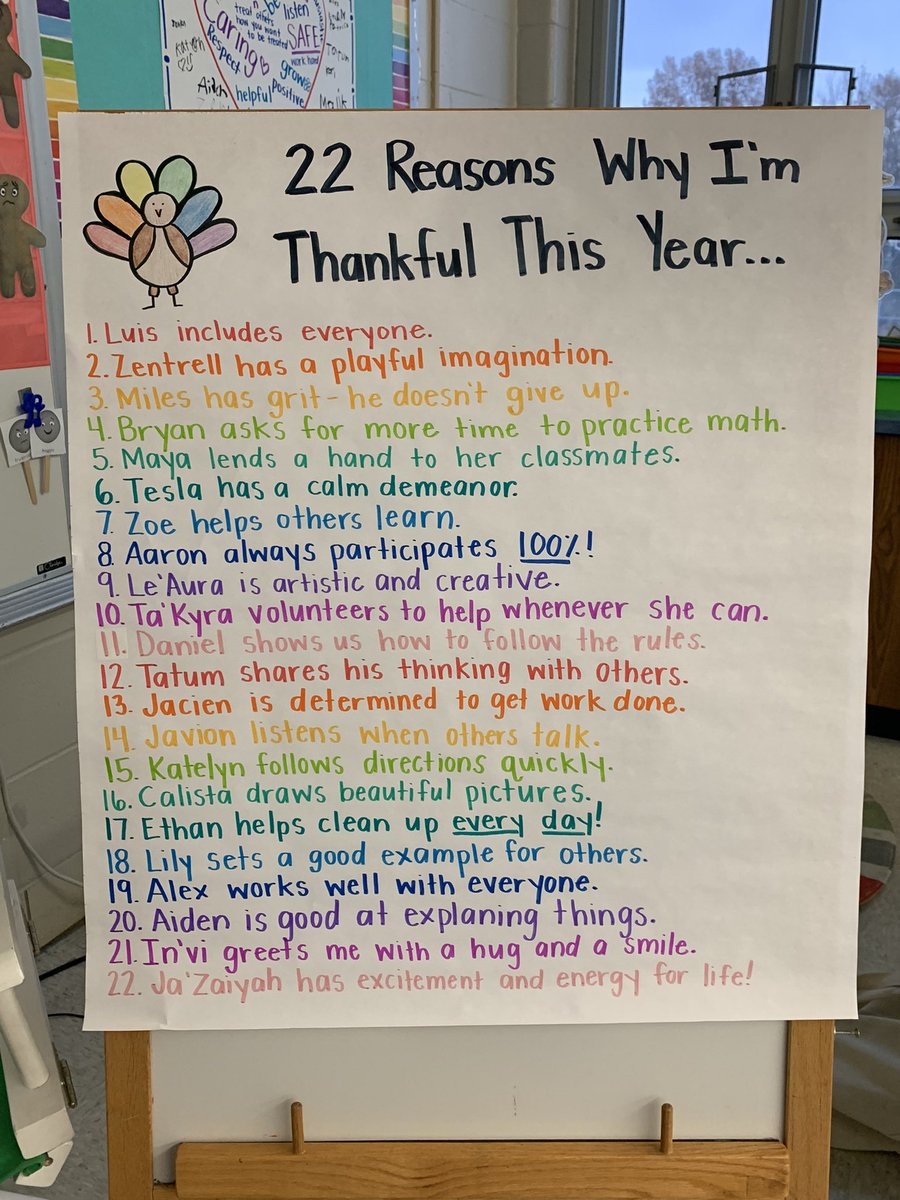 treat others
how you want
to be treated
be
listen
SAFE
Caring
Respect
work hard
grow
helpful
Positive
Aiden
22 Reasons Why I'm
Thankful This Year...
1. Luis includes everyone.
2. Zentrell has a playful imagination.
3. Miles has grit - he doesn't give up.
4. Bryan asks for more time to practice math.
5. Maya lends a hand to her classmates.
6. Tesla has a calm demeanor.
7. Zoe helps others learn.
8. Aaron always participates 100%!
9. Le'Aura is artistic and creative.
10. Ta'Kyra volunteers to help whenever she can.
11. Daniel shows us how to follow the rules.
12. Tatum shares his thinking with others.
13. Jacien is determined to get work done.
14. Javion listens when others talk.
15. Katelyn follows directions quickly.
16. Calista draws beautiful pictures.
17. Ethan helps clean up every day!
18. Lily sets a good example for others.
19. Alex works well with everyone.
20. Aiden is good at explaning things.
21. In'vi greets me with a hug and a smile.
22. Ja'Zaiyah has excitement and energy for life!